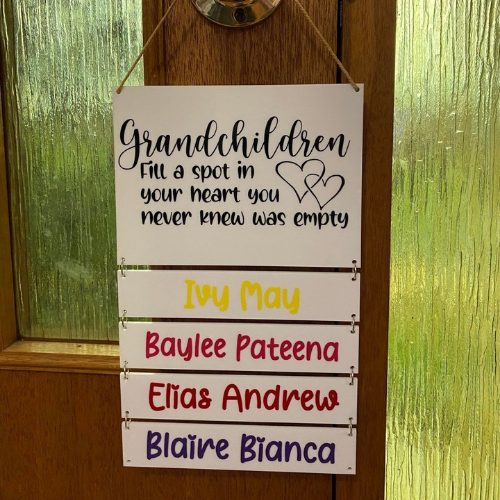 Grandchildren
Fill a spot in
your heart you
never knew was empty
Ivy May
Baylee Pateena
Elias Andrew
Blaire Bianca